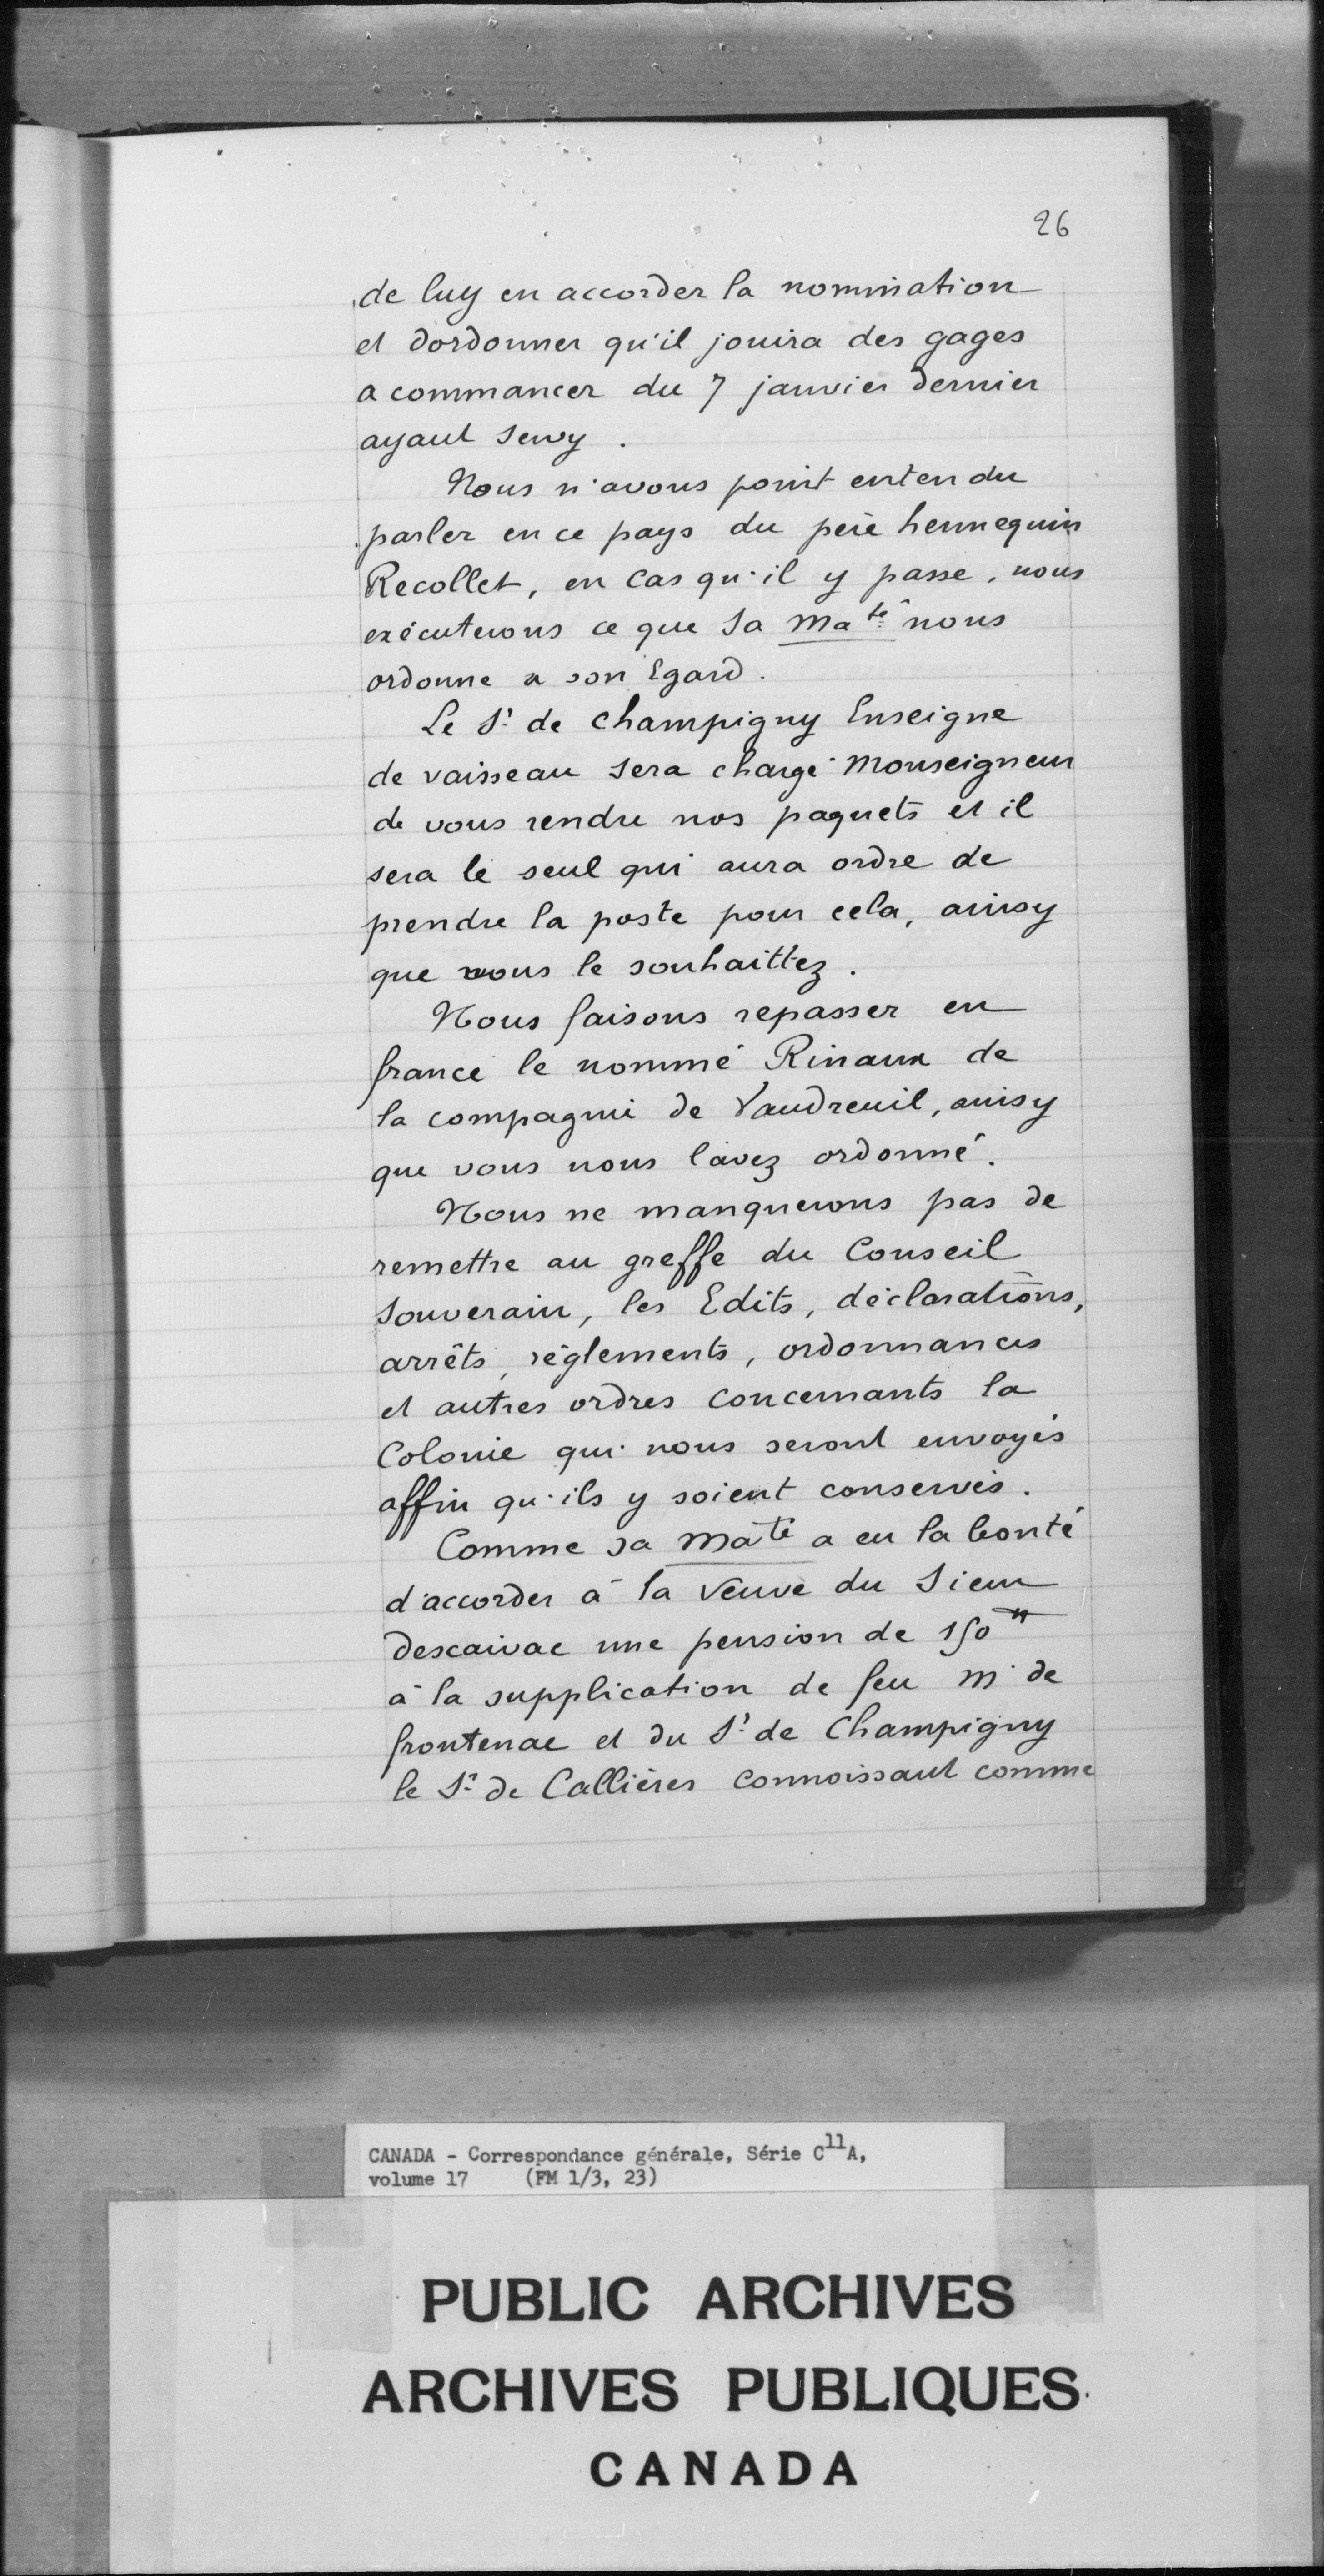 26
de luy en accorder la nomination
et dordonner qu'il jouira des gages
a commancer du 7 janvier dernier
ayant servy.
Nous n'avons point entendu
parler en ce pays du père hennequin
Recollet, en cas qu'il y passe, nous
exécuterons ce que Sa Ma.té nous
ordonne a son Egard.
Le Sr. de Champigny Enseigne
de vaisseau sera chargé Monseigneur
de vous rendre nos paquets et il
sera le seul qui aura ordre de
prendre la poste pour cela, ainsy
que vous le souhaittez.
Nous faisons repasser en
france le nommé Rinaux de
la compagnie de Vaudreuil, ainsy
que vous nous l'avez ordonné.
Nous ne manquerons pas de
remettre au greffe du Conseil
Souverain, les Edits, déclarations,
arrêts, règlements, ordonnances
et autres ordres concernants la
Colonie qui nous seront envoyés
affin qu'ils y soient conservés.
Comme sa Maté a eu la bonté
d'accorder à la Veuve du Sieur
descairac une pension de 150#
à la supplication de feu M. de
frontenac et du Sr. de Champigny
le Sr. de Callières connoissant comme
CANADA - Correspondance générale, Série C11A,
volume 17 (FM 1/3, 23)
PUBLIC ARCHIVES
ARCHIVES PUBLIQUES
CANADA